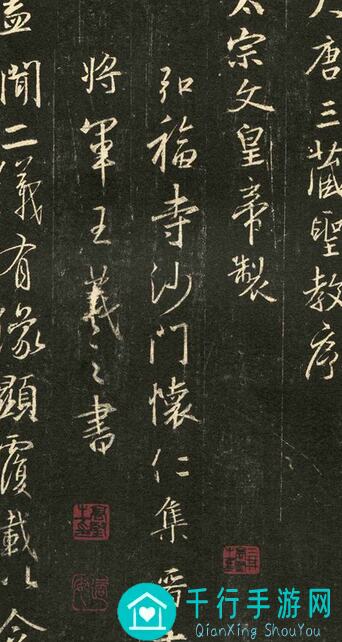 大唐三藏聖教序
太宗文皇帝製
弘福寺沙門懷仁集晉
將軍王羲之書
蓋聞二儀有像顯覆載以含
千行手游网
QianXing ShouYou